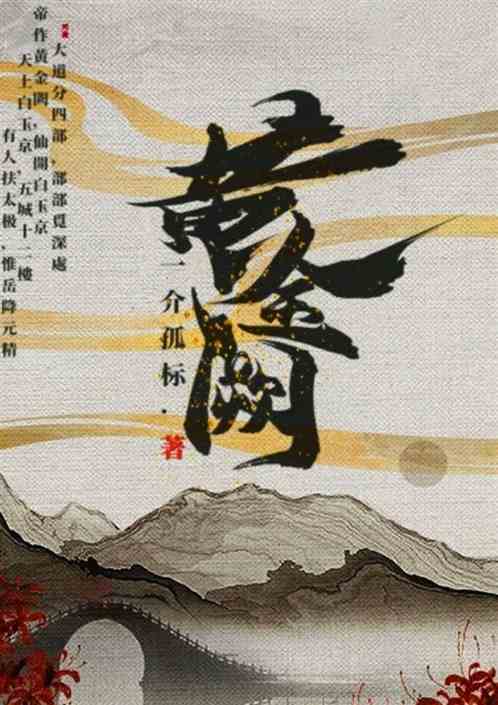 黄金闕
一介孤标·著
大道分四部,部部覓深處
帝作黄金闕,仙開白玉京
天上白玉京,五城十二樓
有人扶太极,惟岳降元精